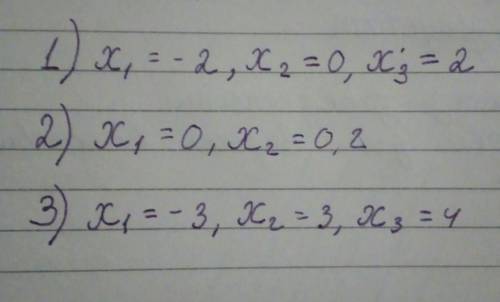 1) x₁ = -2, x₂ = 0, x₃ = 2
2) x₁ = 0, x₂ = 0,2
3) x₁ = -3, x₂ = 3, x₃ = 4